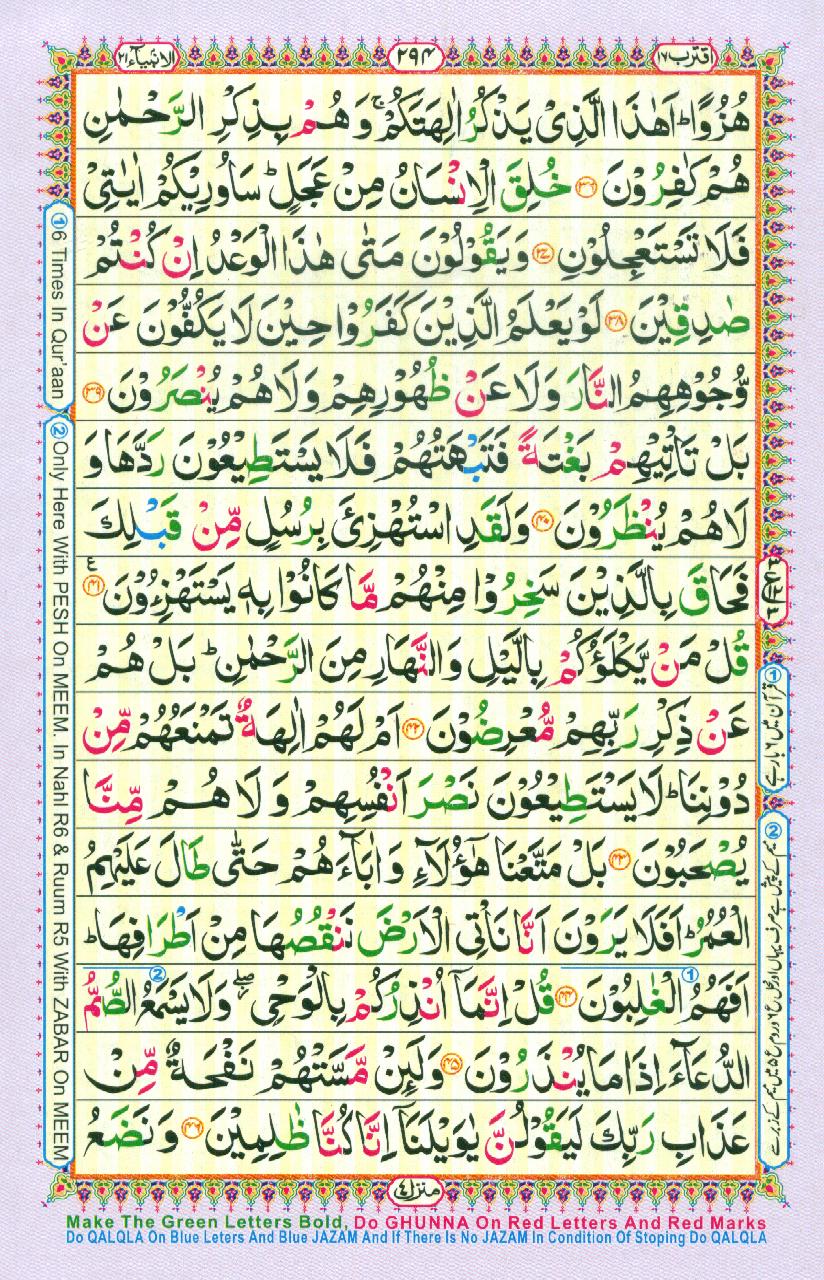 اقترب ١٧
٢٩٤
الانبیآء ٢١
هُزُوًا ؕ اَهٰذَا الَّذِیْ یَذْكُرُ اٰلِهَتَكُمْ ۚ وَ هُمْ بِذِكْرِ الرَّحْمٰنِ
هُمْ كٰفِرُوْنَ ﴿۳۶﴾ خُلِقَ الْاِنْسَانُ مِنْ عَجَلٍ ؕ سَاُورِیْكُمْ اٰیٰتِیْ
فَلَا تَسْتَعْجِلُوْنِ ﴿۳۷﴾ وَیَقُوْلُوْنَ مَتٰی هٰذَا الْوَعْدُ اِنْ كُنْتُمْ
صٰدِقِیْنَ ﴿۳۸﴾ لَوْ یَعْلَمُ الَّذِیْنَ كَفَرُوْا حِیْنَ لَا یَكُفُّوْنَ عَنْ
وُّجُوْهِهِمُ النَّارَ وَلَا عَنْ ظُهُوْرِهِمْ وَلَا هُمْ یُنْصَرُوْنَ ﴿۳۹﴾
بَلْ تَاْتِیْهِمْ بَغْتَةً فَتَبْهَتُهُمْ فَلَا یَسْتَطِیْعُوْنَ رَدَّهَا وَ
لَا هُمْ یُنْظَرُوْنَ ﴿۴۰﴾ وَلَقَدِ اسْتُهْزِئَ بِرُسُلٍ مِّنْ قَبْلِكَ
فَحَاقَ بِالَّذِیْنَ سَخِرُوْا مِنْهُمْ مَّا كَانُوْا بِهٖ یَسْتَهْزِءُوْنَ ﴿۴۱﴾ ع
قُلْ مَنْ یَّكْلَؤُكُمْ بِالَّیْلِ وَالنَّهَارِ مِنَ الرَّحْمٰنِ ؕ بَلْ هُمْ
عَنْ ذِكْرِ رَبِّهِمْ مُّعْرِضُوْنَ ﴿۴۲﴾ اَمْ لَهُمْ اٰلِهَةٌ تَمْنَعُهُمْ مِّنْ
دُوْنِنَا ؕ لَا یَسْتَطِیْعُوْنَ نَصْرَ اَنْفُسِهِمْ وَ لَا هُمْ مِّنَّا
یُصْحَبُوْنَ ﴿۴۳﴾ بَلْ مَتَّعْنَا هٰۤؤُلَآءِ وَ اٰبَآءَهُمْ حَتّٰی طَالَ عَلَیْهِمُ
الْعُمُرُ ؕ اَفَلَا یَرَوْنَ اَنَّا نَاْتِی الْاَرْضَ نَنْقُصُهَا مِنْ اَطْرَافِهَا ؕ
اَفَهُمُ الْغٰلِبُوْنَ ﴿۴۴﴾ قُلْ اِنَّمَاۤ اُنْذِرُكُمْ بِالْوَحْیِ ۖ وَلَا یَسْمَعُ الصُّمُّ
الدُّعَآءَ اِذَا مَا یُنْذَرُوْنَ ﴿۴۵﴾ وَلَىِٕنْ مَّسَّتْهُمْ نَفْحَةٌ مِّنْ
عَذَابِ رَبِّكَ لَیَقُوْلُنَّ یٰوَیْلَنَاۤ اِنَّا كُنَّا ظٰلِمِیْنَ ﴿۴۶﴾ وَ نَضَعُ
①قرآن میں ۶ بار ہے
①6 Times In Qur'aan
②Only Here With PESH On MEEM. In Nahl R6 & Ruum R5 With ZABAR On MEEM
منزل ٤
Make The Green Letters Bold, Do GHUNNA On Red Letters And Red Marks
Do QALQLA On Blue Leters And Blue JAZAM And If There Is No JAZAM In Condition Of Stoping Do QALQLA